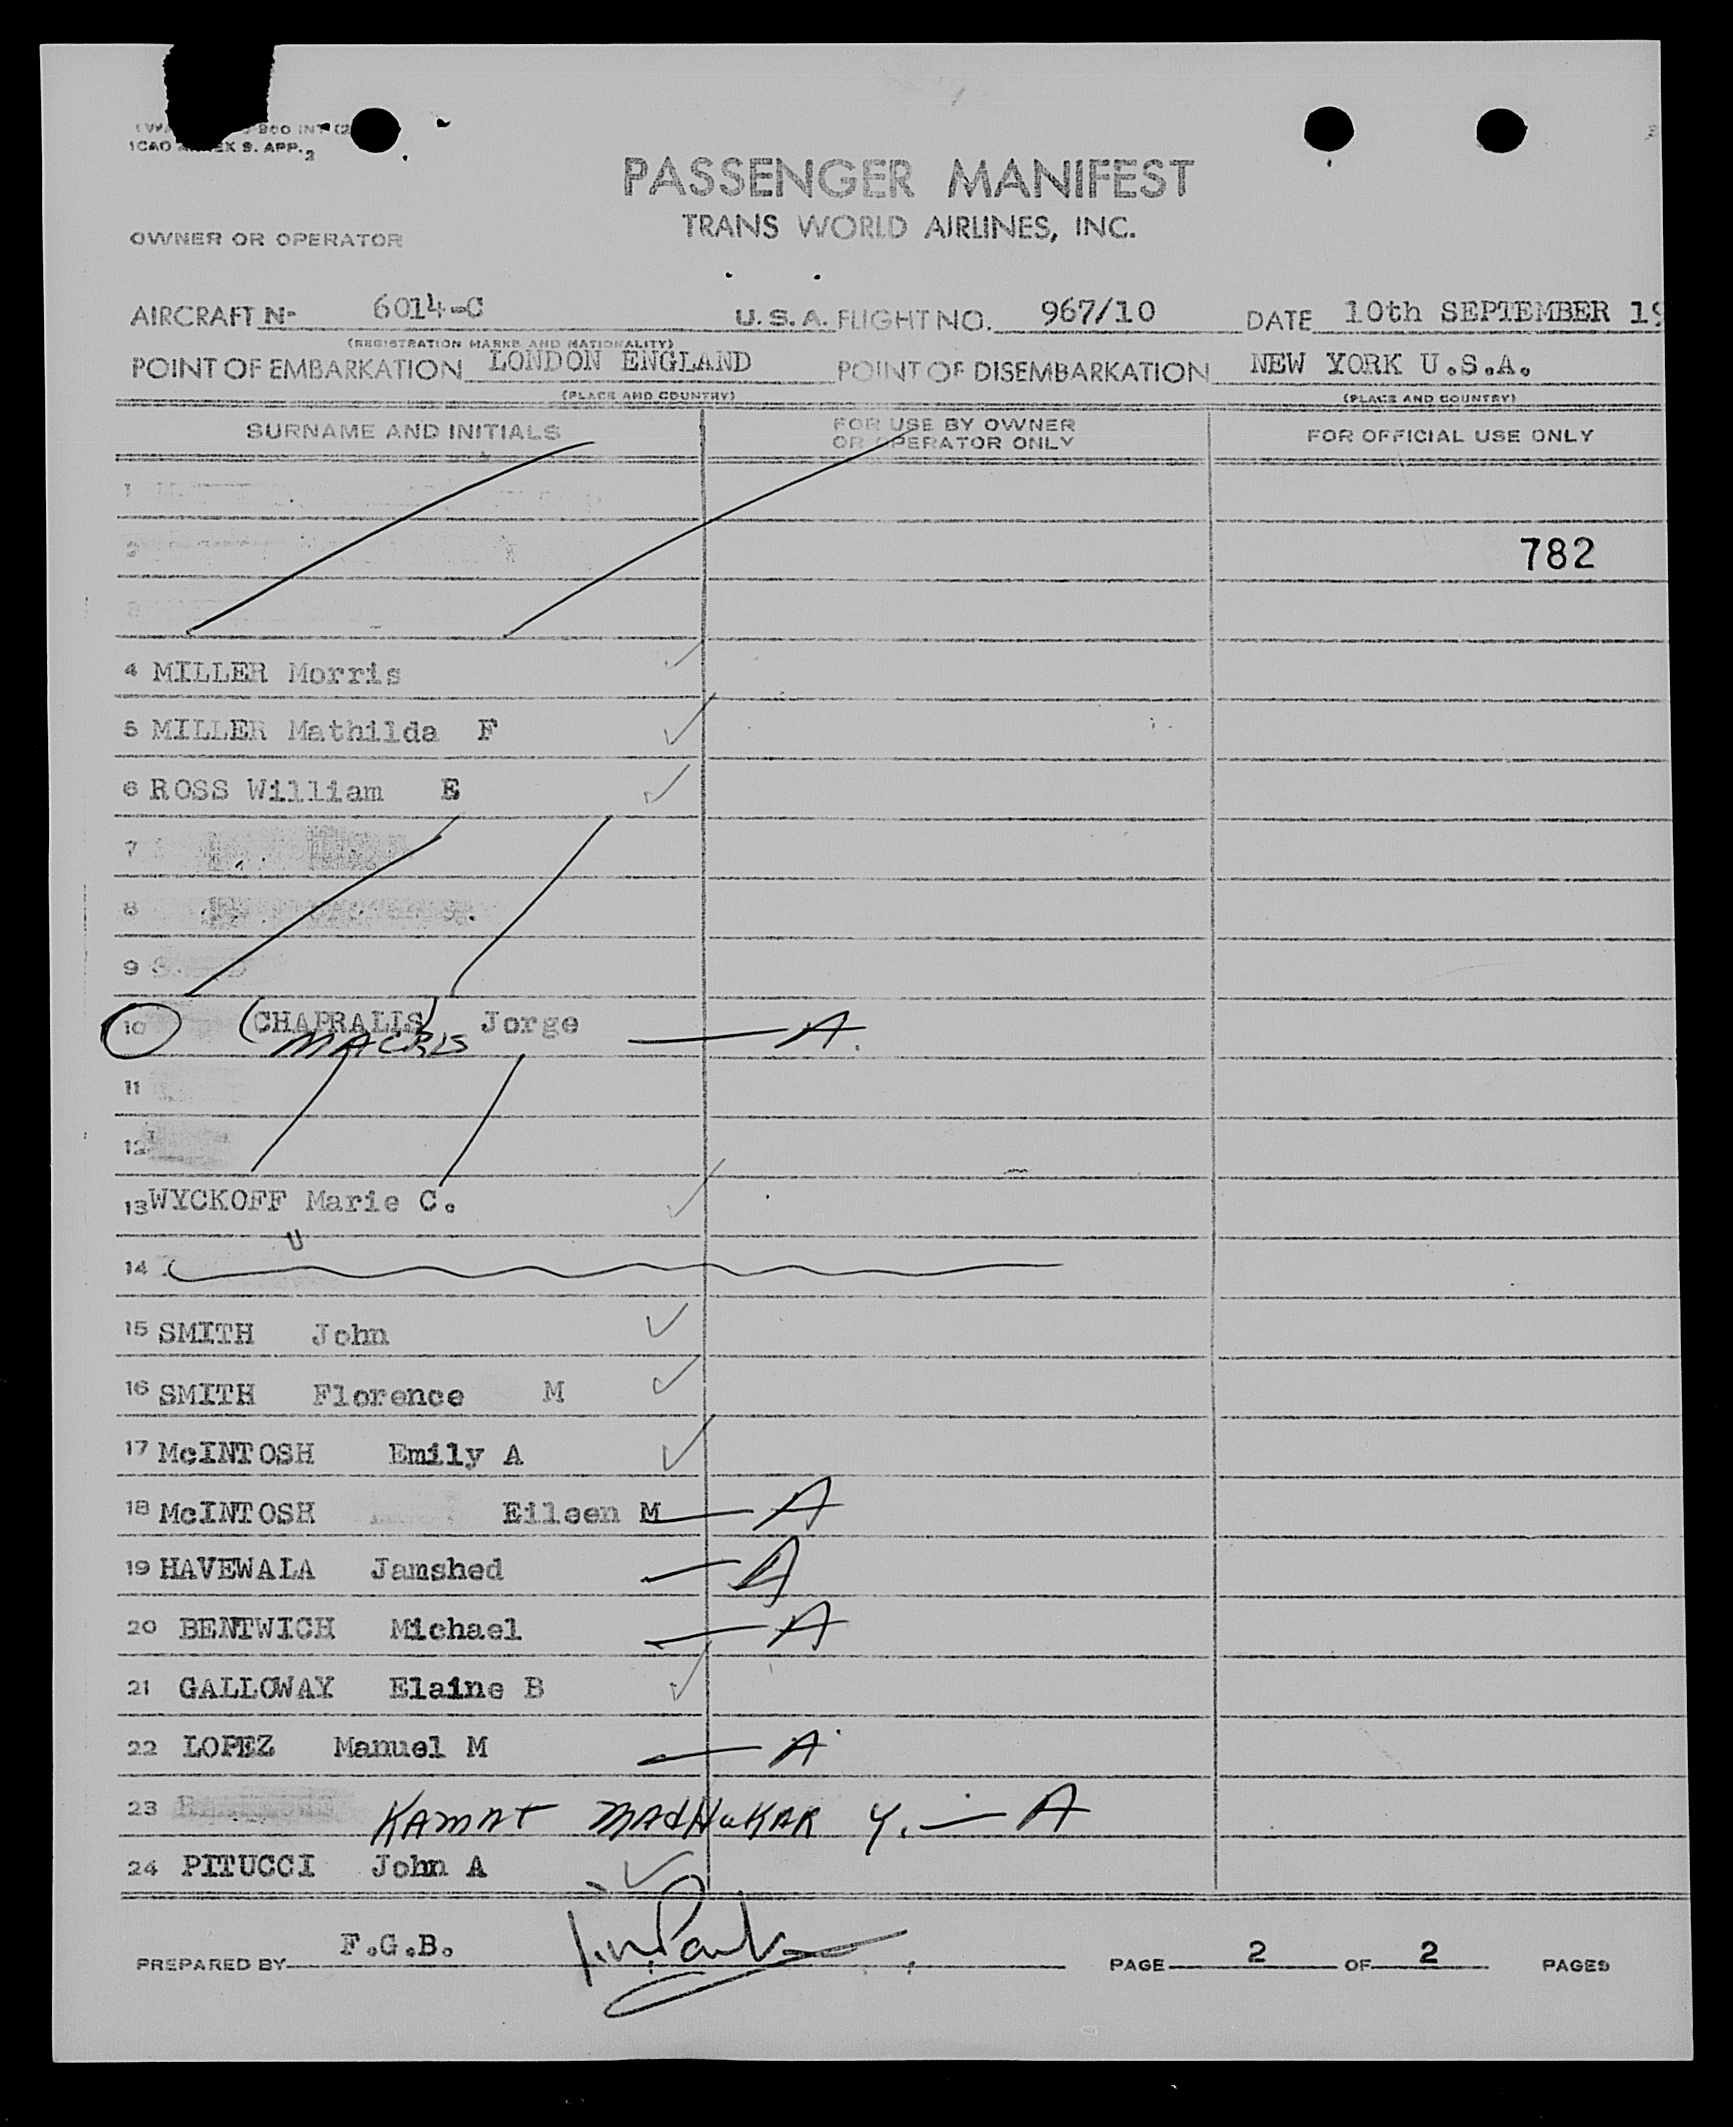 ICAO ANNEX 9. APP. 2
PASSENGER MANIFEST
TRANS WORLD AIRLINES, INC.
OWNER OR OPERATOR
AIRCRAFT N- 6014-C U.S.A. FLIGHT NO. 967/10 DATE 10th SEPTEMBER 19
(REGISTRATION MARKS AND NATIONALITY)
POINT OF EMBARKATION LONDON ENGLAND POINT OF DISEMBARKATION NEW YORK U.S.A.
(PLACE AND COUNTRY) (PLACE AND COUNTRY)
SURNAME AND INITIALS FOR USE BY OWNER OR OPERATOR ONLY FOR OFFICIAL USE ONLY
1
2 782
3
4 MILLER Morris
5 MILLER Mathilda F
6 ROSS William E
7
8
9
10 (CHAPRALIS) Jorge — A.
MACRIS
11
12
13 WYCKOFF Marie C.
U
14
15 SMITH John
16 SMITH Florence M
17 McINTOSH Emily A
18 McINTOSH Eileen M — A
19 HAVEWALA Jamshed — A
20 BENTWICH Michael — A
21 GALLOWAY Elaine B
22 LOPEZ Manuel M — A
23 KAMAT MADHUKAR Y. — A
24 PITUCCI John A
PREPARED BY F.G.B. PAGE 2 OF 2 PAGES